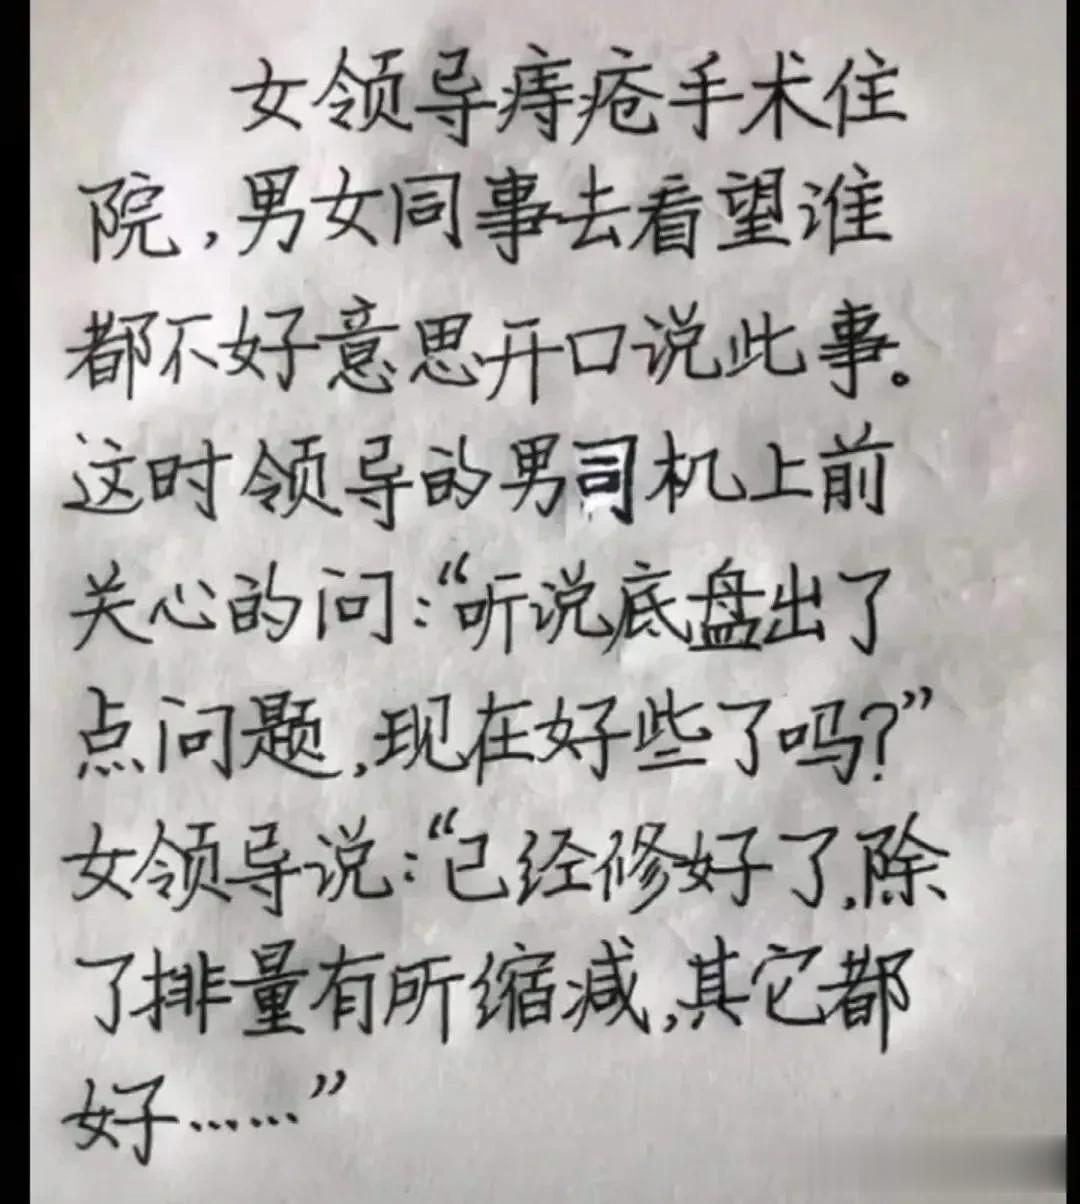 女领导痔疮手术住
院,男女同事去看望谁
都不好意思开口说此事。
这时领导的男司机上前
关心的问:“听说底盘出了
点问题,现在好些了吗?”
女领导说:“已经修好了,除
了排量有所缩减,其它都
好……”